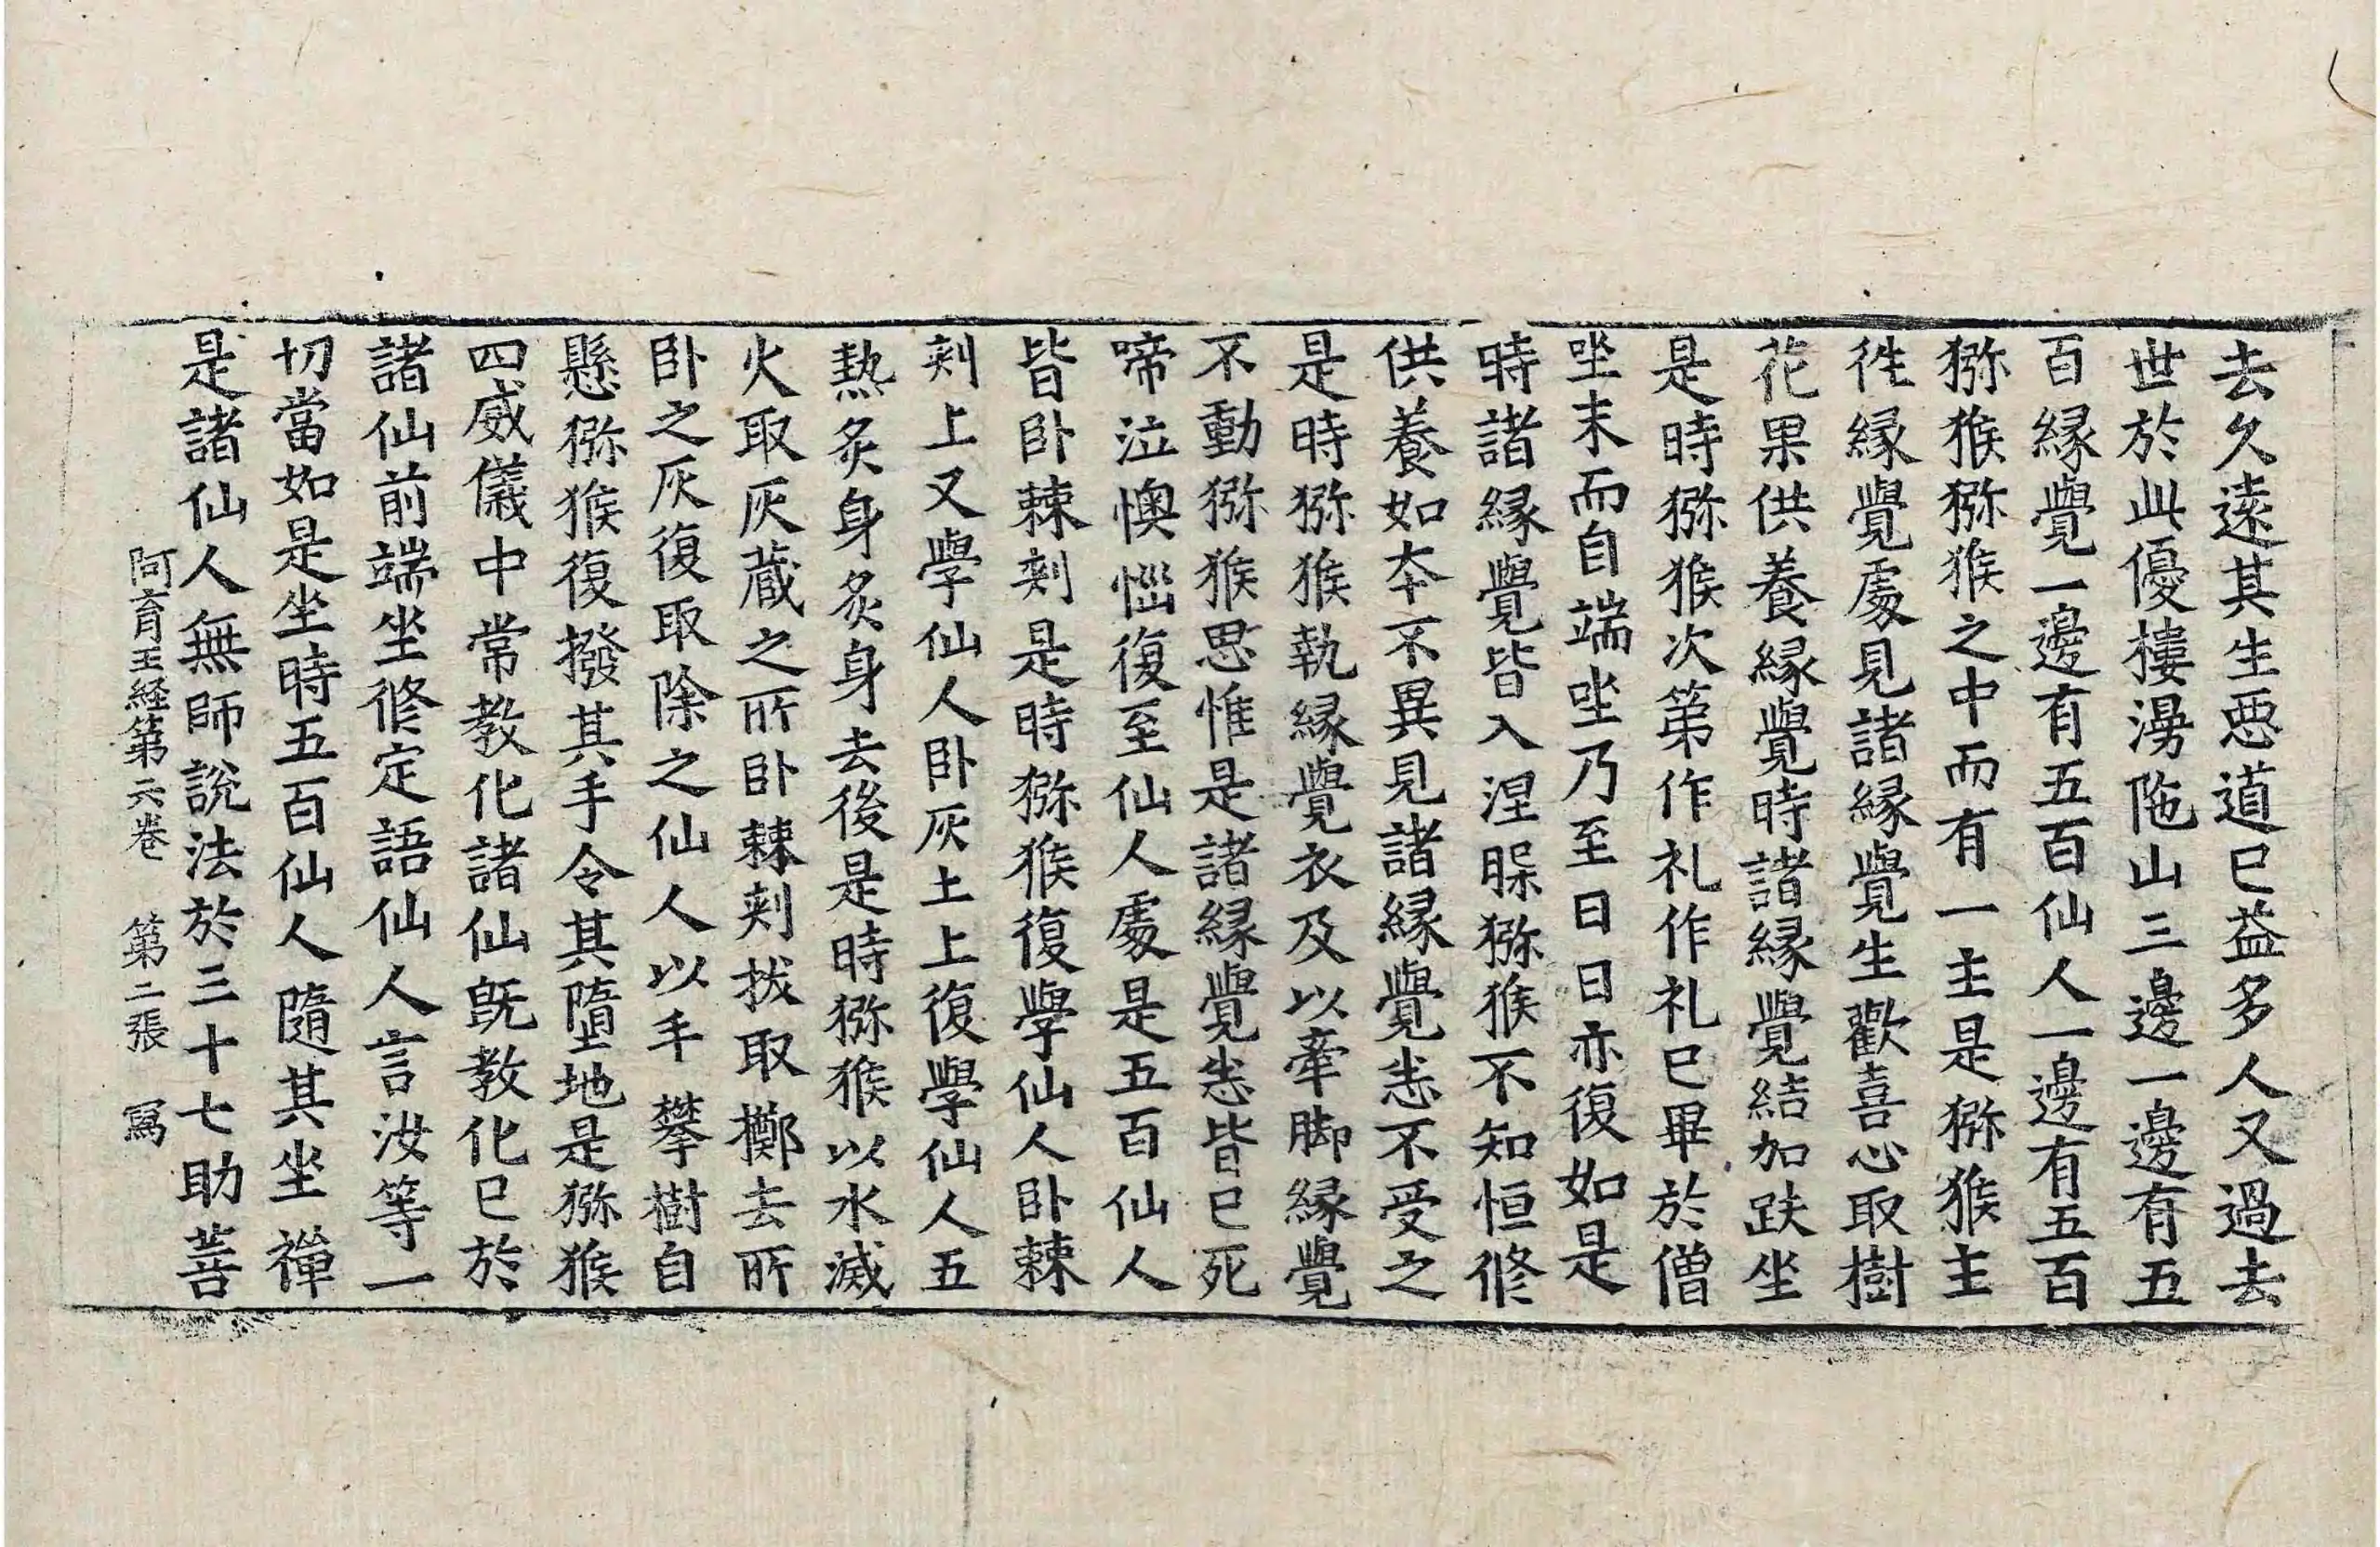 去久遠其生悪道已益多人又過去
世於此優樓湯陁山三邊一邊有五
百縁覺一邊有五百仙人一邊有五百
猕猴猕猴之中而有一主是猕猴主
徃縁覺處見諸縁覺生歡喜心取樹
花果供養縁覺時諸縁覺結加趺坐
是時猕猴次第作礼作礼已畢於僧
坐末而自端坐乃至日日亦復如是
時諸縁覺皆入涅槃猕猴不知恒修
供養如本不異見諸縁覺悉不受之
是時猕猴執縁覺衣及以牽脚縁覺
不動猕猴思惟是諸縁覺悉皆已死
啼泣懊惱復至仙人處是五百仙人
皆卧棘刾是時猕猴復學仙人卧棘
刾上又學仙人卧灰土上復學仙人五
熱炙身炙身去後是時猕猴以水滅
火取灰蔵之所卧棘刾拔取擲去所
卧之灰復取除之仙人以手攀樹自
懸猕猴復撥其手令其墮地是猕猴
四威儀中常教化諸仙旣教化已於
諸仙前端坐修定語仙人言汝等一
切當如是坐時五百仙人隨其坐禪
是諸仙人無師說法於三十七助菩
阿育王経第六卷 第二張 寫